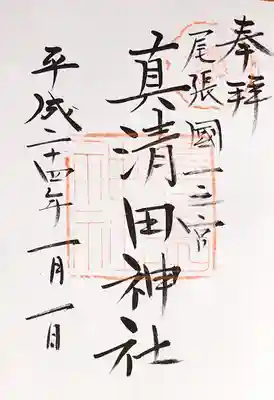 奉拝
尾張國一之宮
真清田神社
平成二十四年一月一日